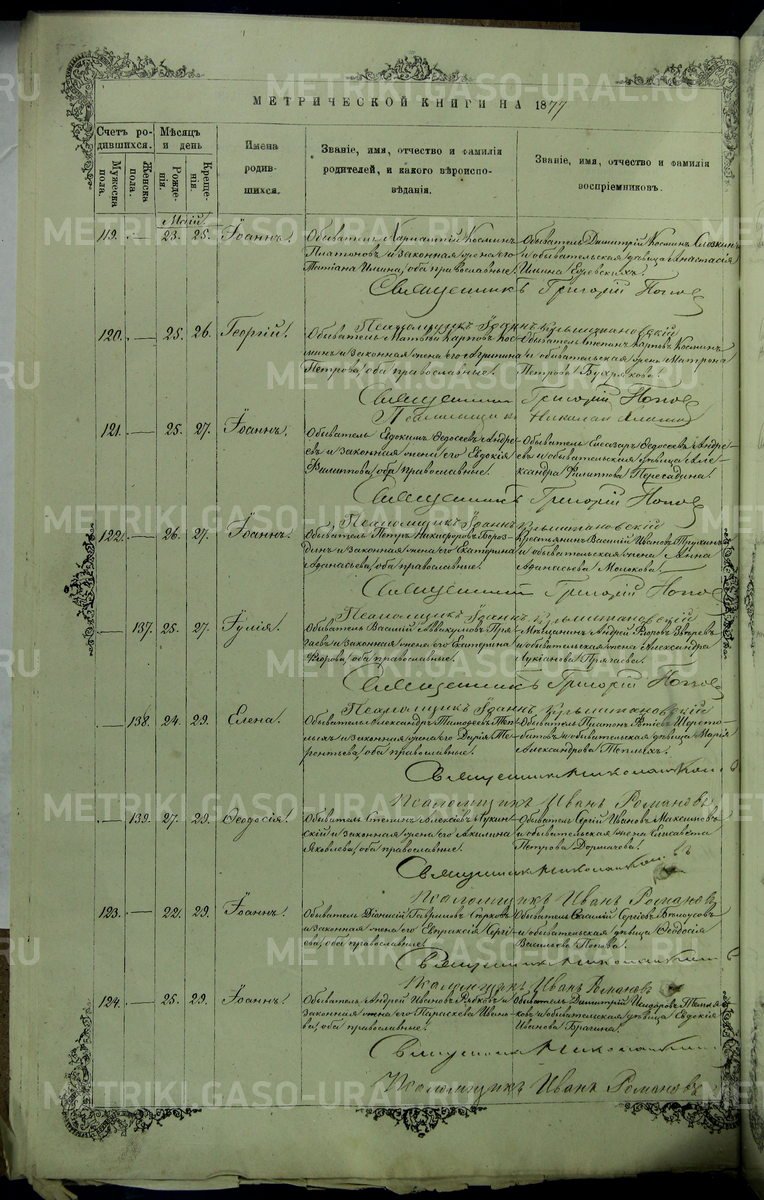 METRIKI.GASO-URAL.RU
МЕТРИЧЕСКОЙ КНИГИ НА 1877
Счетъ ро-
дившихся.
Мужеска
пола.
Женска
пола.
Мѣсяцъ
и день
Рожде-
нія.
Креще-
нія.
Имена
родив-
шихся.
Званіе, имя, отчество и фамилія
родителей, и какого вѣроиспо-
вѣданія.
Званіе, имя, отчество и фамилія
воспріемниковъ.
Маій.
119. — 23. 25. Іоаннъ.
Обыватель Козминъ
Платоновъ и законная жена его
Татіана Ильина, оба православные.
Обыватель Димитрій Козминъ
и обывательская дѣвица Анастасія
Ильина
Священникъ Григорій Попов
Псаломщикъ Іоаннъ
120. — 25. 26. Георгій.
Обыватель Матвей Карповъ Кос-
минъ и законная жена его Агрипина
Петрова, оба православные.
Обыватель Степанъ Карповъ Косминъ
и обывательская жена Матрона
Петрова
Священникъ Григорій Попов
Псаломщикъ Николай
121. — 25. 27. Іоаннъ.
Обыватель Евдокимъ Федосеевъ Андре-
евъ и законная жена его Евдокія
Филиппова, оба православные.
Обыватель Елеазаръ Федосеевъ Андре-
евъ и обывательская дѣвица Але-
ксандра Филиппова Пересадина.
Священникъ Григорій Попов
Псаломщикъ Іоаннъ
122. — 26. 27. Іоаннъ.
Обыватель Петръ Никифоровъ Бороз-
динъ и законная жена его Екатерина
Афанасьева, оба православные.
Крестьянинъ Василій Ивановъ Трухинъ
и обывательская жена Анна
Афанасьева Молокова.
Священникъ Григорій Попов
Псаломщикъ Іоаннъ
— 137. 25. 27. Іулія.
Обыватель Василій Аввакумовъ Пря-
гаевъ и законная жена его Екатерина
Егорова, оба православные.
Мѣщанинъ Андрей Егоровъ Звѣревъ
и обывательская жена Александра
Лукіанова Прягаева.
Священникъ Григорій Попов
Псаломщикъ Іоаннъ
— 138. 24. 29. Елена.
Обыватель Александръ Тимофеевъ Теп-
лыхъ и законная жена его Дарія Те-
рентьева, оба православные.
Обыватель Платонъ Шерсто-
битовъ и обывательская дѣвица Марія
Александрова Теплыхъ.
Священникъ
Псаломщикъ Иванъ Романовъ
— 139. 27. 29. Феодосія.
Обыватель Степанъ Алексіевъ
и законная жена его Акилина
Яковлева, оба православные.
Обыватель Сергій Ивановъ Максимовъ
и обывательская жена Елисавета
Петрова Дормачева.
Священникъ
Псаломщикъ Иванъ Романовъ
123. — 22. 29. Іоаннъ.
Обыватель Діонисій Гавриловъ
и законная жена его Евпраксія Серге-
ева, оба православные.
Обыватель Василій Сергіевъ Бѣлоусовъ
и обывательская дѣвица Феодосія
Васильева Попова.
Священникъ
Псаломщикъ Иванъ Романовъ
124. — 25. 29. Іоаннъ.
Обыватель Андрей Ивановъ Рябковъ и
законная жена его Параскева Ивано-
ва, оба православные.
Обыватель Димитрій Исидоровъ
и обывательская дѣвица Евдокія
Иванова Брагина.
Священникъ
Псаломщикъ Иванъ Романовъ